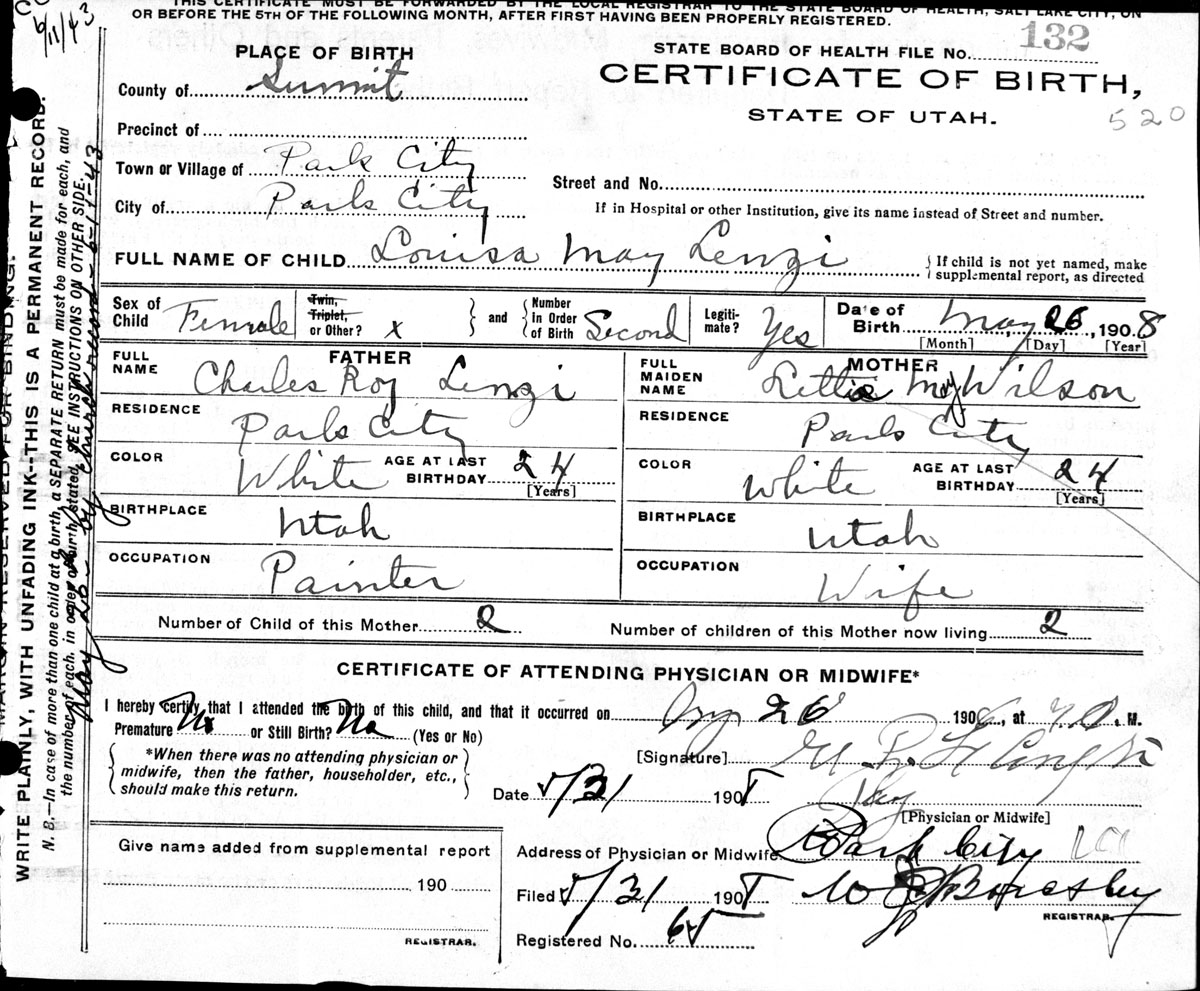 6/11/43
THIS CERTIFICATE MUST BE FORWARDED BY THE LOCAL REGISTRAR TO THE STATE BOARD OF HEALTH, SALT LAKE CITY, ON
OR BEFORE THE 5TH OF THE FOLLOWING MONTH, AFTER FIRST HAVING BEEN PROPERLY REGISTERED.
PLACE OF BIRTH
STATE BOARD OF HEALTH FILE No. 132
CERTIFICATE OF BIRTH,
STATE OF UTAH.
520
County of Summit
Precinct of
Town or Village of Park City
Street and No.
City of Park City
If in Hospital or other Institution, give its name instead of Street and number.
FULL NAME OF CHILD Louisa May Lenzi
If child is not yet named, make
supplemental report, as directed
Sex of Child Female
Twin, Triplet, or Other? x
and
Number In Order of Birth Second
Legiti- mate? Yes
Date of Birth May 26, 1908
[Month] [Day] [Year]
FATHER
FULL NAME Charles Roy Lenzi
RESIDENCE Park City
COLOR White AGE AT LAST BIRTHDAY 24 [Years]
BIRTHPLACE Utah
OCCUPATION Painter
MOTHER
FULL MAIDEN NAME Lettie May Wilson
RESIDENCE Park City
COLOR White AGE AT LAST BIRTHDAY 24 [Years]
BIRTHPLACE Utah
OCCUPATION Wife
Number of Child of this Mother 2
Number of children of this Mother now living 2
CERTIFICATE OF ATTENDING PHYSICIAN OR MIDWIFE*
I hereby certify that I attended the birth of this child, and that it occurred on 26 190 , at M.
Premature No or Still Birth? No (Yes or No)
*When there was no attending physician or
midwife, then the father, householder, etc.,
should make this return.
[Signature]
Date 5/31 1908
[Physician or Midwife]
Give name added from supplemental report
190
REGISTRAR.
Address of Physician or Midwife Park City
Filed 5/31 1908
REGISTRAR.
Registered No. 65
MARGIN RESERVED FOR BINDING.
WRITE PLAINLY, WITH UNFADING INK--THIS IS A PERMANENT RECORD.
N. B.—In case of more than one child at a birth, a SEPARATE RETURN must be made for each, and
the number of each, in order of birth, stated. SEE INSTRUCTIONS ON OTHER SIDE.
May 26 by church record 6-11-43